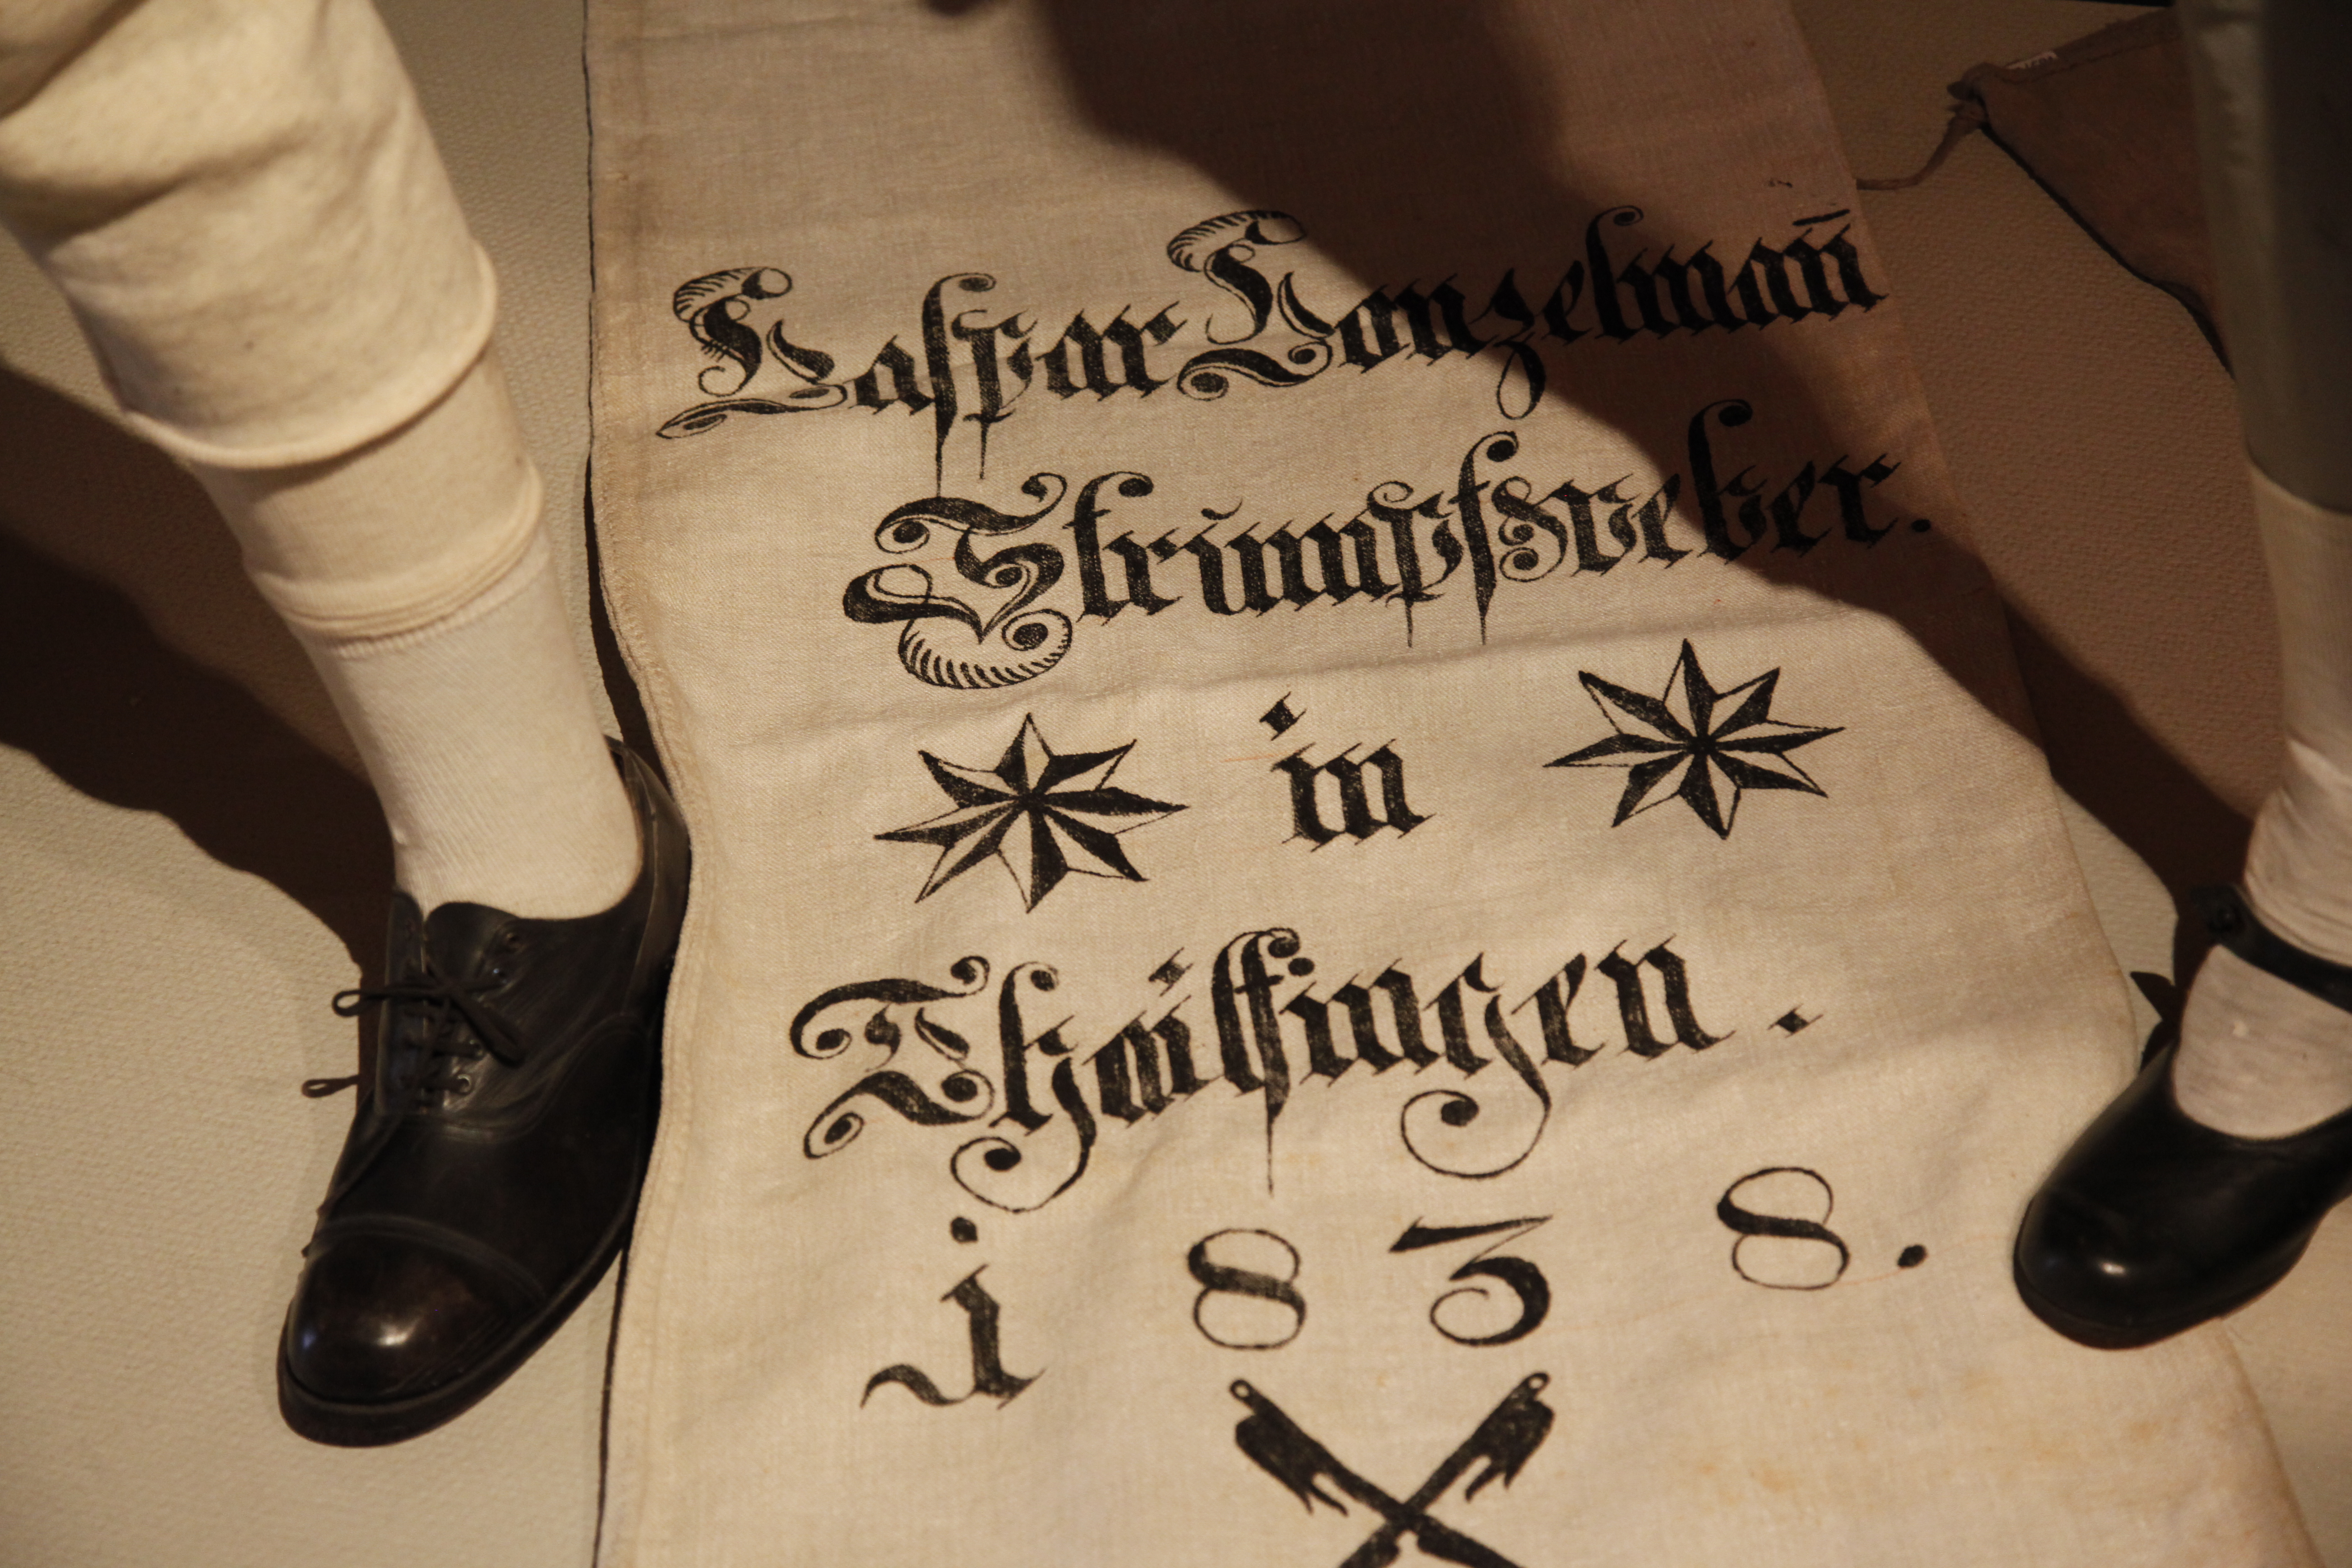 Kaspar Konzelman̄
Strümpfweber.
in
Thailfingen.
1838.